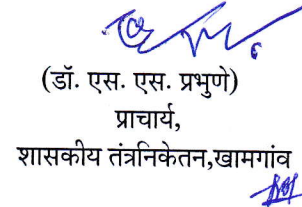 (डॉ. एस. एस. प्रभुणे)
प्राचार्य,
शासकीय तंत्रनिकेतन,खामगांव